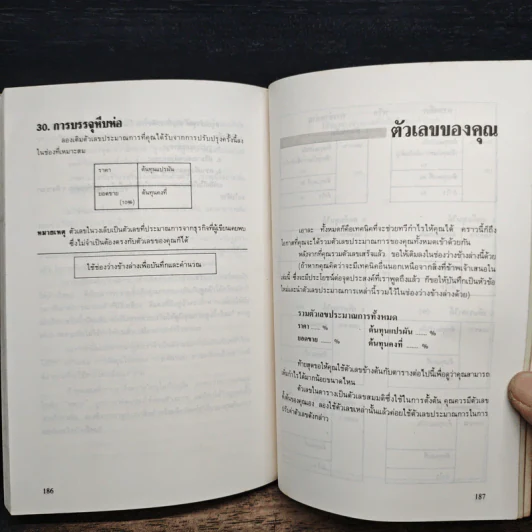 30. การบรรจุหีบห่อ
ลองเติมตัวเลขประมาณการที่คุณได้รับจากการปรับปรุงครั้งนี้ลง
ในช่องที่เหมาะสม
ราคา ต้นทุนแปรผัน
ยอดขาย ต้นทุนคงที่
(10%)
หมายเหตุ ตัวเลขในวงเล็บเป็นตัวเลขที่ประมาณการจากธุรกิจที่ผู้เขียนเคยพบ
ซึ่งไม่จำเป็นต้องตรงกับตัวเลขของคุณก็ได้
ใช้ช่องว่างข้างล่างเพื่อบันทึกและคำนวณ
186
ตัวเลขของคุณ
เอาละ ทั้งหมดก็คือเทคนิคที่จะช่วยทวีกำไรให้คุณได้ คราวนี้ก็ถึง
โอกาสที่คุณจะได้รวมตัวเลขประมาณการของคุณทั้งหมดเข้าด้วยกัน
หลังจากที่คุณรวมตัวเลขเสร็จแล้ว ขอให้เติมลงในช่องว่างข้างล่างนี้ด้วย
(ถ้าหากคุณคิดว่าจะมีเทคนิคอื่นนอกเหนือจากสิ่งที่ข้าพเจ้าเสนอใน
เล่มนี้ ซึ่งจะมีประโยชน์ต่อจุดประสงค์ที่เราพูดถึงแล้ว ก็ขอให้บันทึกเป็นหัวข้อ
ใหม่และนำตัวเลขประมาณการเหล่านี้รวมไว้ในช่องว่างข้างล่างด้วย)
รวมตัวเลขประมาณการทั้งหมด
ราคา ..... % ต้นทุนแปรผัน ..... %
ยอดขาย ..... % ต้นทุนคงที่ ..... %
ท้ายสุดขอให้คุณใช้ตัวเลขข้างต้นกับตารางต่อไปนี้เพื่อดูว่าคุณสามารถ
เพิ่มกำไรได้มากน้อยขนาดไหน
ตัวเลขในตารางเป็นตัวเลขสมมติซึ่งใช้ในการตั้งต้น คุณควรมีตัวเลข
ตั้งต้นของคุณเอง ลองใช้ตัวเลขเหล่านั้นแล้วค่อยใช้ตัวเลขประมาณการในการ
ปรับค่าตัวเลขดังกล่าว
187